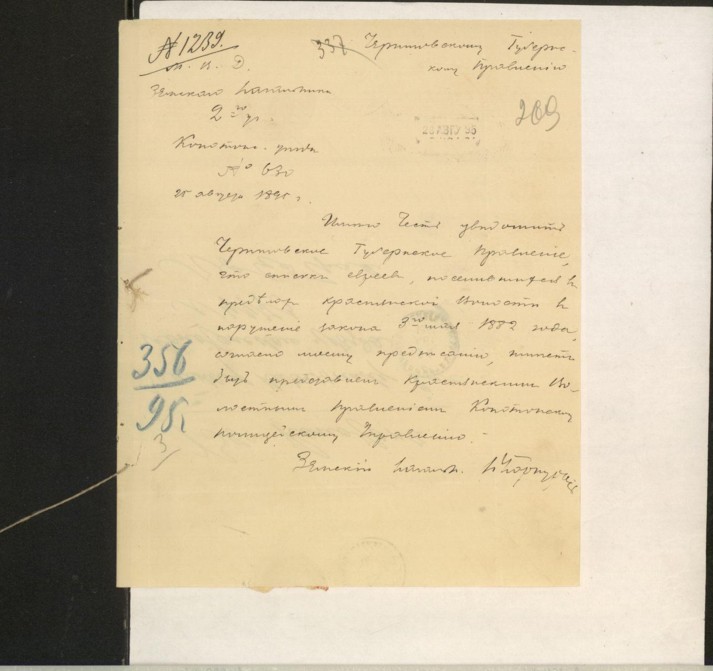 № 1239.
М. В. Д.
337
Черниговскому Губернс-
кому Правлению
Земского Начальника
2го уч.
269
Конотоп. уезда
№
25 августа 1895 г.
Имею Честь уведомить
Черниговское Губернское Правление,
что списки евреев, поселившихся в
пределах Красненской Волости в
нарушение закона 3го мая 1882 года,
согласно моему предписанию,
быть представлен Красненским Во-
лостным Правлением Конотопскому
полицейскому Управлению.
356
95.
3
Земский Начальн.